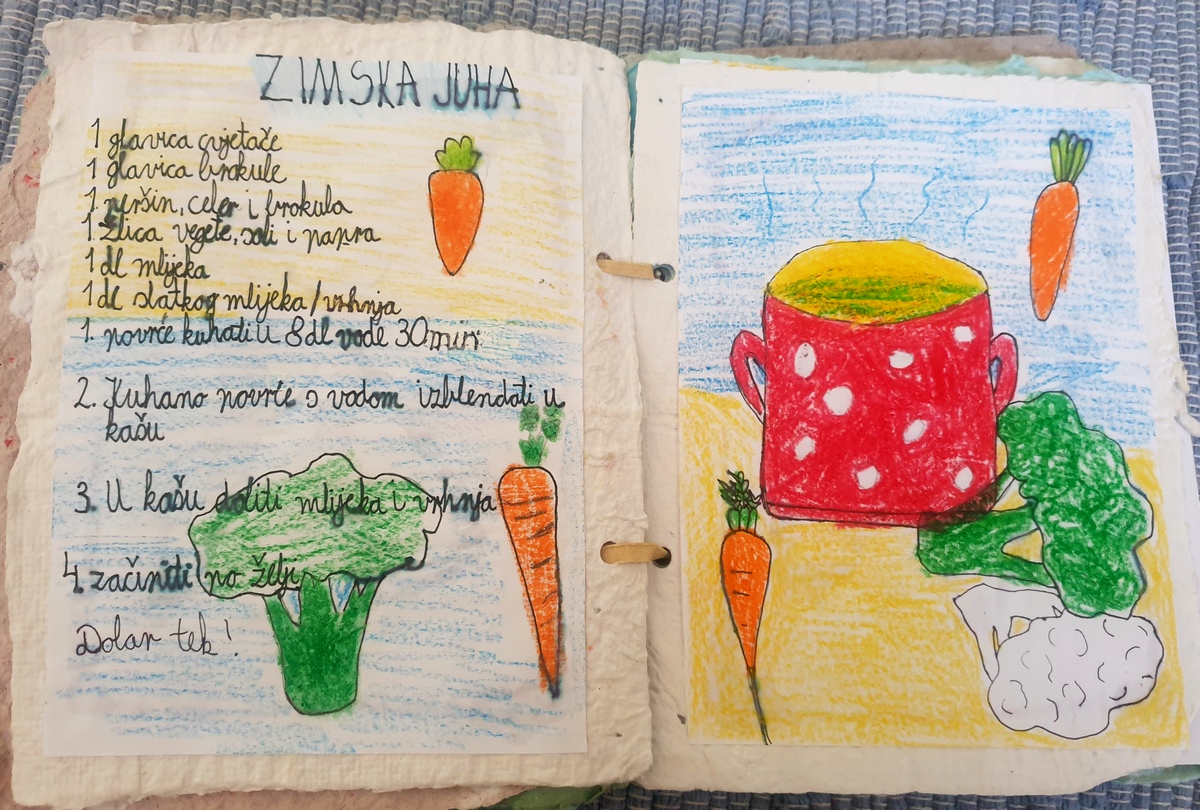 ZIMSKA JUHA
1 glavica cvjetače
1 glavica brokule
1 peršin, celer i brokula
1 žlica vegete, soli i papra
1 dl mlijeka
1 dl slatkog mlijeka / vrhnja
1. povrće kuhati u 8 dl vode 30 min
2. Kuhano povrće s vodom izblendati u
kašu
3. U kašu doliti mlijeka i vrhnja
4. začiniti po želji
Dobar tek!